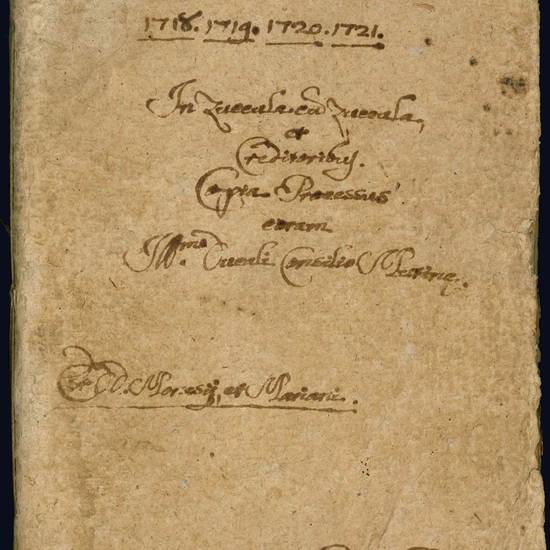 1718. 1719. 1720. 1721.
In Zuccala ca Zuccala,
et
Creditoribus.
Copia Processus
coram
Ill.mo Ducali Consilio Mutinę.
DD. Moresij, et Mariani.